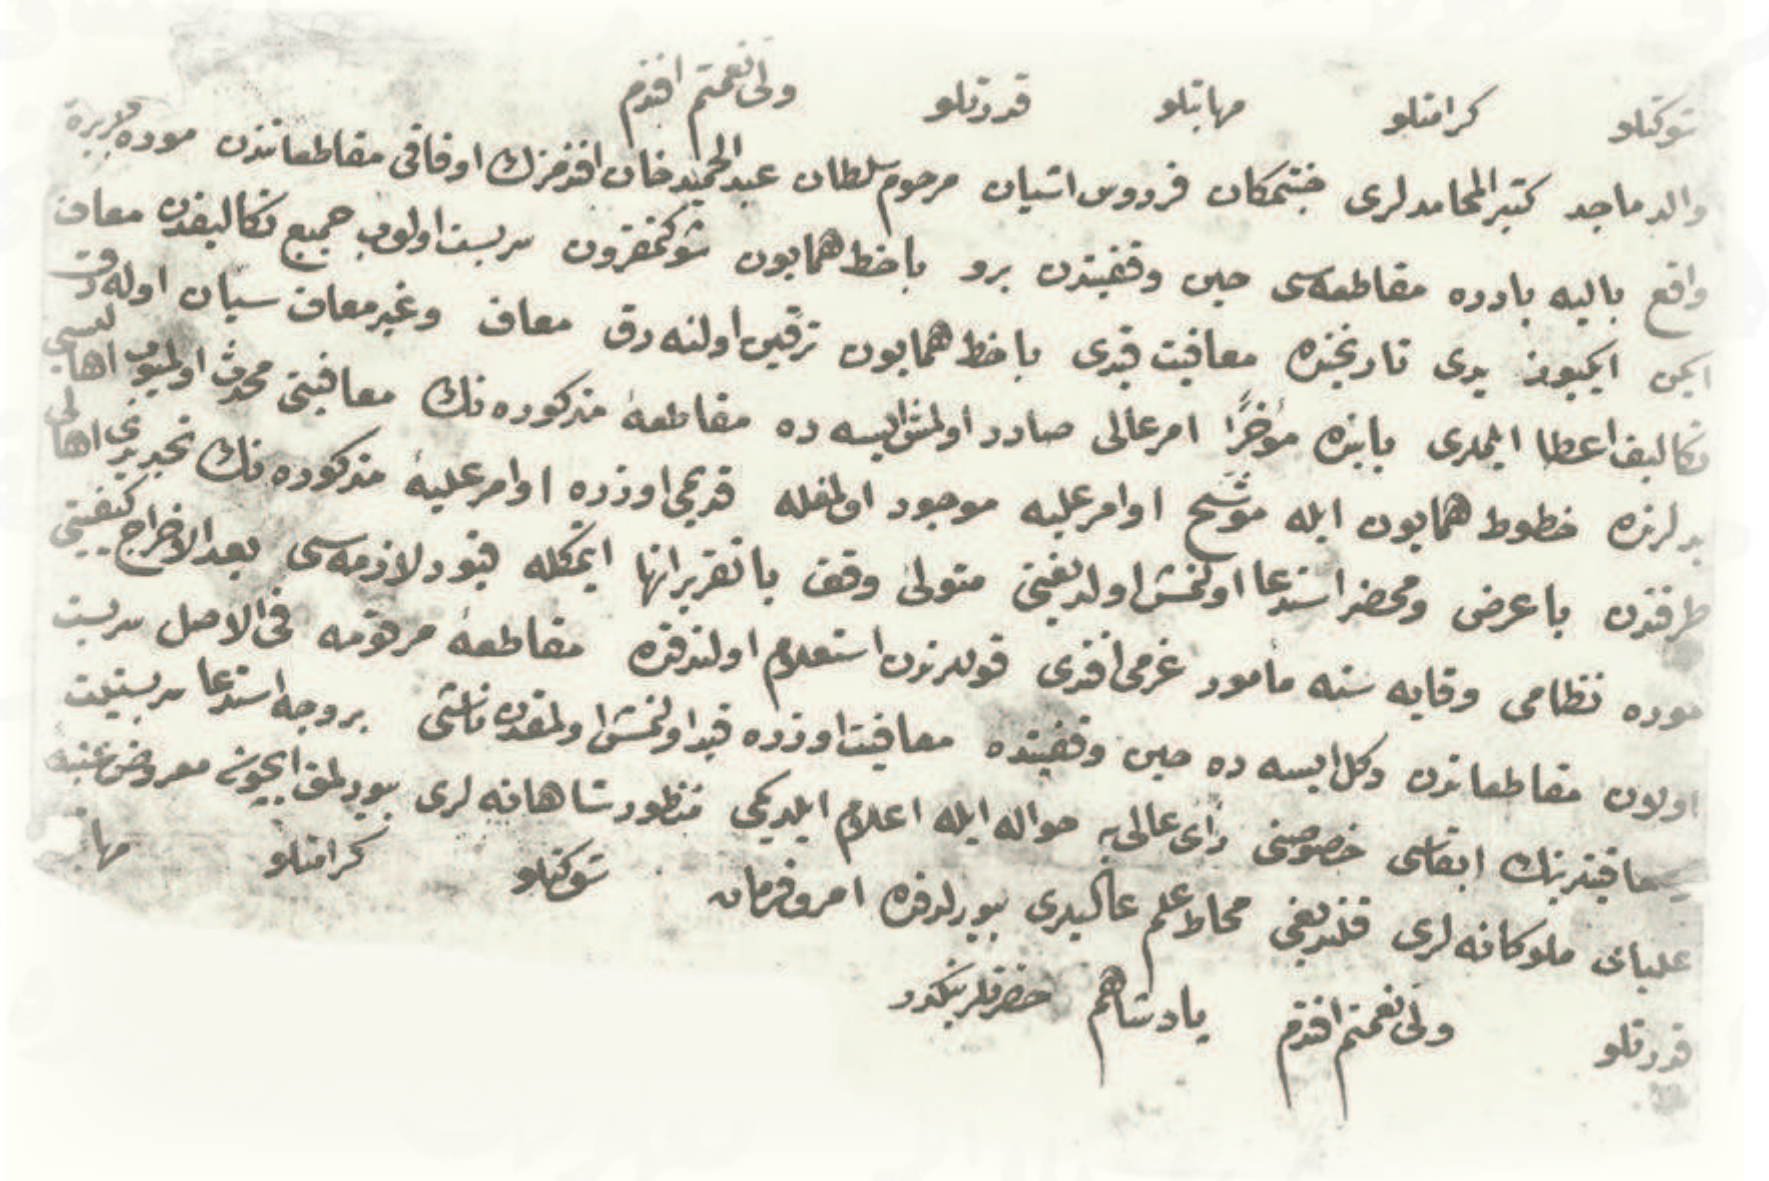 شوكتلو كرامتلو مهابتلو قدرتلو ولى نعمتم افندم
والد ماجد كثير المحامدلرى جنتمكان فردوس اشيان مرحوم سلطان عبدالحميد خان افندمزك اوقافى مقاطعاتندن موره ده جزيره
واقع باليه بادره مقاطعه سى حين وقفيتدن برو با خط همايون شوكتمقرون سربست اولوب جميع تكاليفدن معاف
ايكن ايكيوز يدى تاريخنده معافيت قيدى با خط همايون ترقين اولنه رق معاف وغير معاف سيان اوله رق
تكاليف اعطا ايلملرى بابنده مؤخرًا امر عالى صادر اولمش ايسه ده مقاطعهٔ مذكوره نك معافيتى محدث اولميوب اهاليسى
يدلرنده خطوط همايون ايله موشح اوامر عليه موجود اولمغله قديمى اوزره اوامر عليهٔ مذكوره نك تجديدى اهالى
طرفندن با عرض ومحضر استدعا اولنمش اولديغنى متولئ وقف با تقرير انها ايتمكله قيود لازمه سى بعد الاخراج كيفيتى
موره نظامى وقايه سنه مأمور عزمى افندى قوللرندن استعلام اولندقده مقاطعهٔ مرقومه فى الاصل سربست
اولان مقاطعاتدن دكل ايسه ده حين وقفيتده معافيت اوزره قيد اولنمش اولمقدن ناشى بر وجه استدعا سربستيت
ومعافيتلرينك ابقاسى خصوصنى رأى عالى يه حواله ايله اعلام ايلديكى منظور شاهانه لرى بيورلمق ايچون معروض عتبهٔ
علياى ملوكانه لرى قلنديغى محاط علم عاليلرى بيورلدقده امر وفرمان شوكتلو كرامتلو مها
قدرتلو ولى نعمتم افندم پادشاهم حضرتلرينكدر